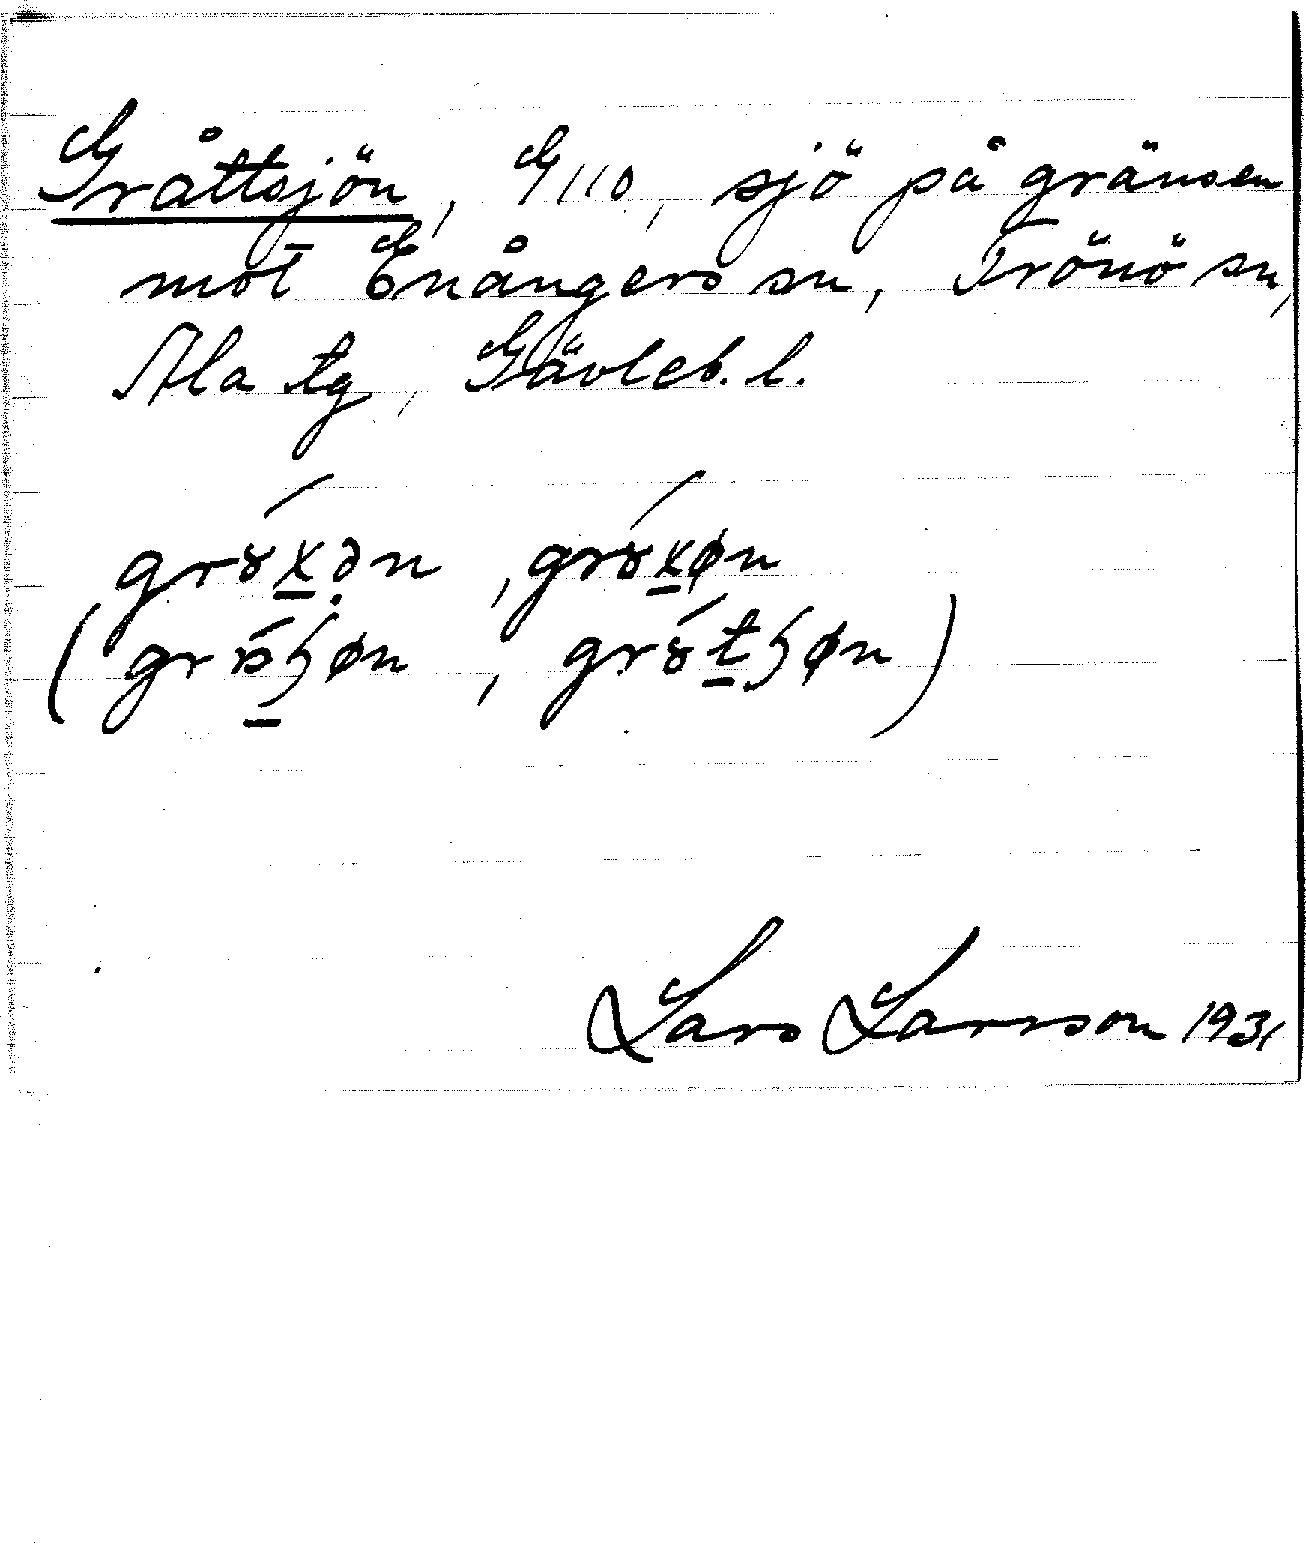 Gråttsjön, G110, sjö på gränsen
mot Enångers sn, Trönö sn,
Ala tg, Gävleb. l.
grɤχən, grɤχøn
(grɒɧøn, grɤtɧøn)
Lars Larsson 1931